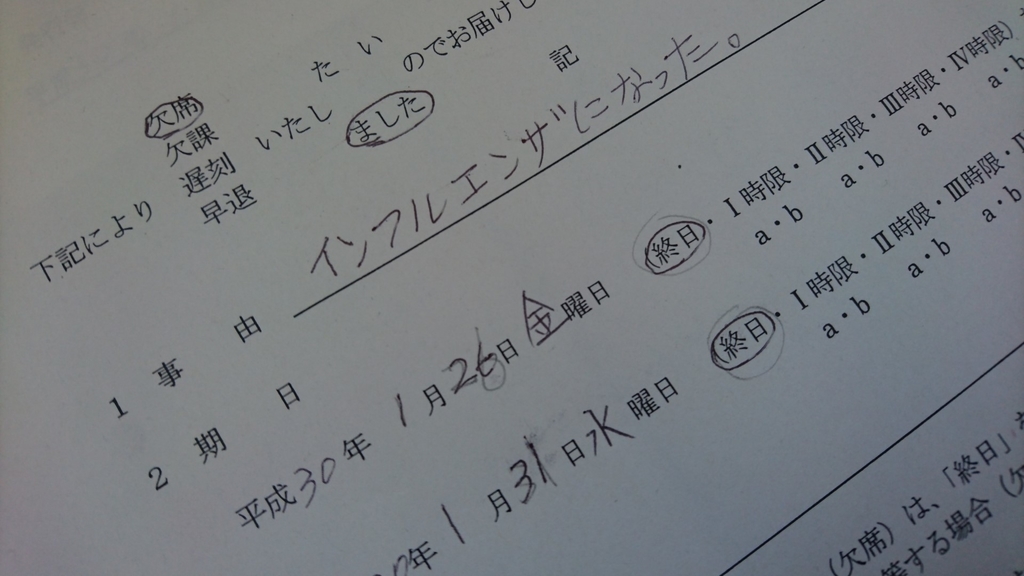 欠席
欠課
遅刻
早退
下記により
いたし
たい
ました
のでお届けし
記
1 事由 インフルエンザになった。
2 期日
平成30年 1月26日 金曜日 終日・Ⅰ時限・Ⅱ時限・Ⅲ時限・Ⅳ時限)
a・b a・b a・b a・b
年 1月31日 水曜日 終日・Ⅰ時限・Ⅱ時限・Ⅲ時限・
a・b a・b a・b
(欠席)は、「終日」を
等する場合(欠